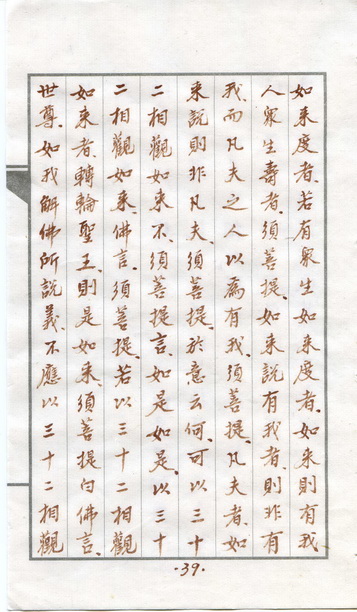 如来度者、若有眾生如来度者、如来則有我
人眾生壽者、須菩提、如来説有我者、則非有
我、而凡夫之人以為有我、須菩提、凡夫者、如
来説則非凡夫、須菩提、於意云何、可以三十
二相觀如来不、須菩提言、如是如是、以三十
二相觀如来、佛言、須菩提、若以三十二相觀
如来者、轉輪聖王、則是如来、須菩提白佛言、
世尊、如我解佛所説義、不應以三十二相觀
·39·